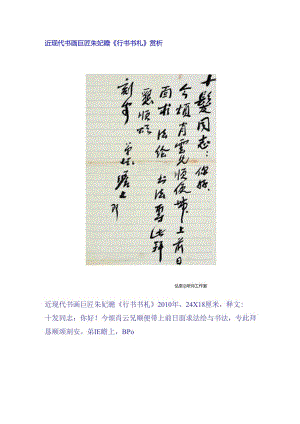 近现代书画巨匠朱妃瞻《行书书札》赏析
十髮同志：你好
今烦肖雲兄顺便带上前日
面求法绘与书法专此拜
恳顺颂
刻安
近现代书画巨匠朱妃瞻《行书书札》2010年，24X18厘米，释文:
十发同志：你好！今烦肖云兄顺便带上前日面求法绘与书法，专此拜
县顺颂刻安，弟IE瞻上，BPo